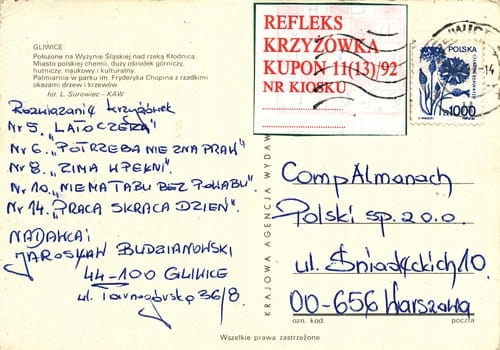 GLIWICE
Położone na Wyżynie Śląskiej nad rzeką Kłodnicą.
Miasto polskiej chemii, duży ośrodek górniczy,
hutniczy, naukowy i kulturalny.
Palmiarnia w parku im. Fryderyka Chopina z rzadkimi
okazami drzew i krzewów
fot. L. Surowiec - KAW
REFLEKS
KRZYŻÓWKA
KUPON 11(13)/92
NR KIOSKU
POLSKA
zł 1000
Rozwiązania krzyżówek
Nr 5. „LATO CZEKA"
Nr 6. „POTRZEBA NIE ZNA PRAW"
Nr 8. „ZIMA W PEŁNI".
Nr 10. „NIE MA TABU BEZ POWABU"
Nr 14. „PRACA SKRACA DZIEŃ".
NADAWCA:
JAROSŁAW BUDZIANOWSKI
44-100 GLIWICE
ul. Tarnogórska 36/8.
KRAJOWA AGENCJA WYDAW
CompAlmanach
Polski sp. z o.o.
ul. Śniadeckich 10
00-656 Warszawa
ozn. kod. poczta
Wszelkie prawa zastrzeżone